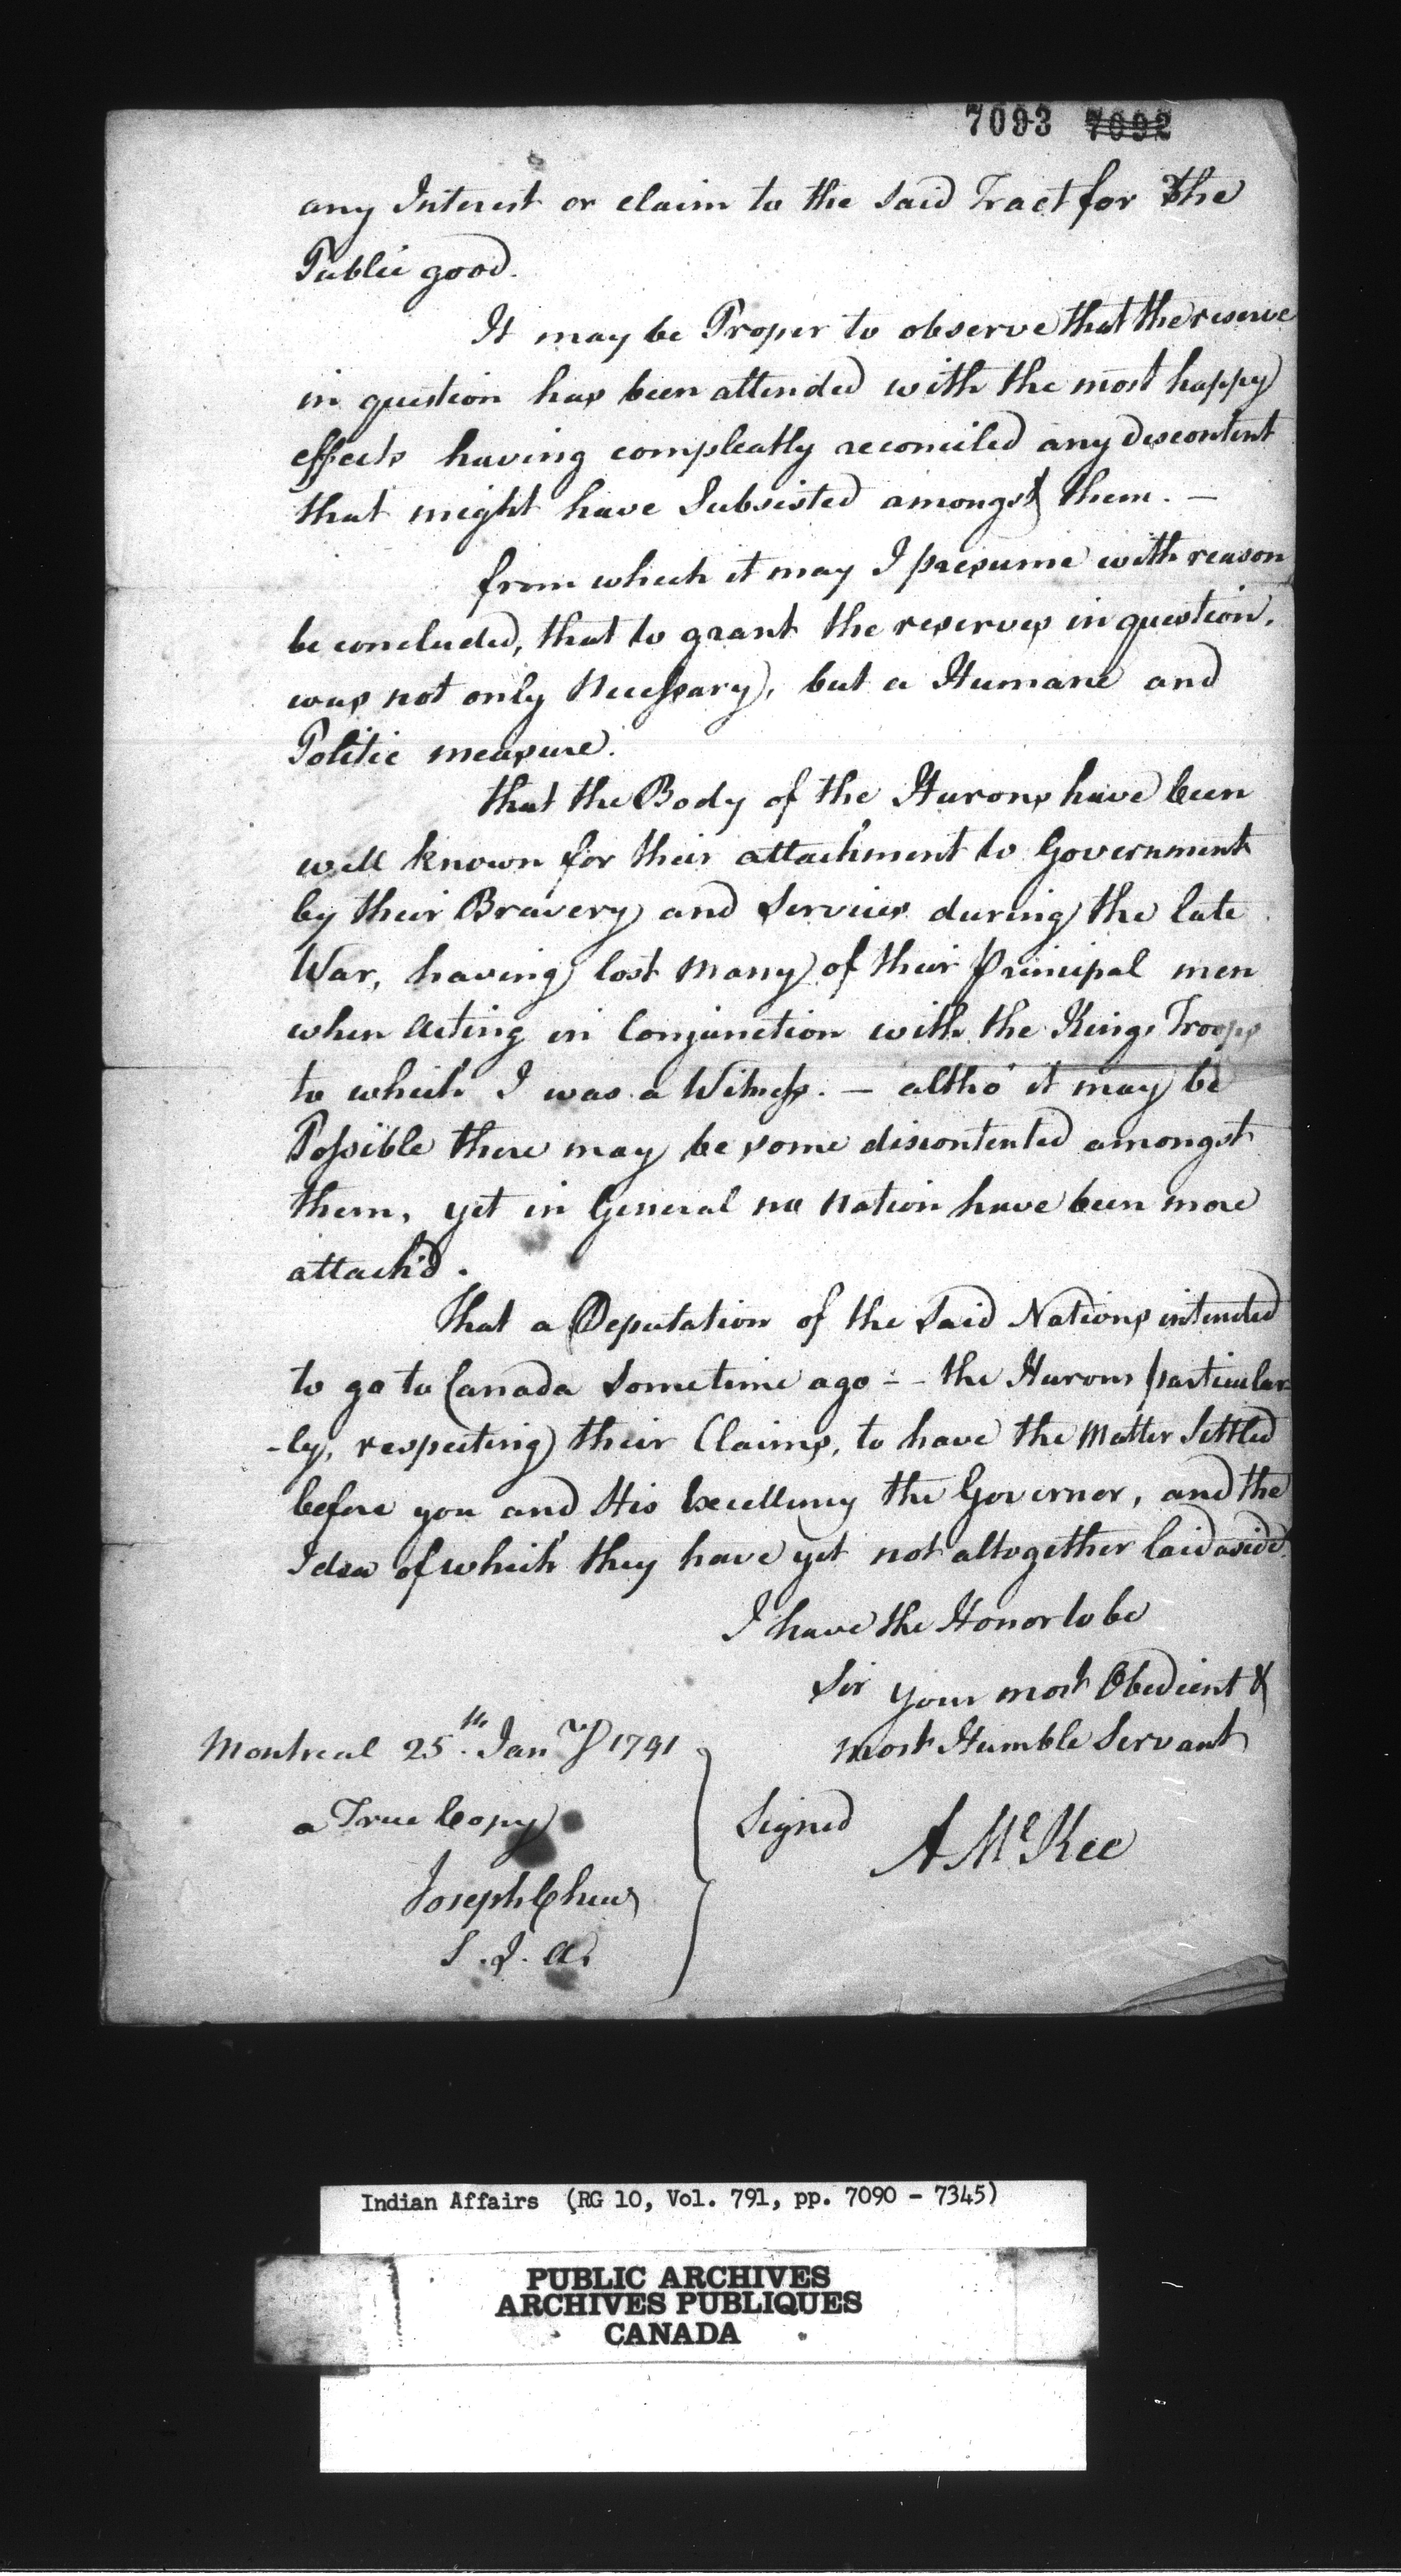 7093 7092
any Interest or claim to the said Tract for the
Public good.
It may be Proper to observe that the reserve
in question has been attended with the most happy
effects having compleatly reconciled any descontent
that might have Subsisted amongst them. —
from which it may I presume with reason
be concluded, that to grant the reserves in question,
was not only Necessary, but a Humane and
Politic measure.
that the Body of the Hurons have been
well known for their attachment to Government
by their Bravery and Services during the late
War, having lost Many of their Principal men
when Acting in Conjunction with the Kings Troops
to which I was a Witness. — altho' it may be
Possible there may be some discontented amongst
them, yet in General no Nation have been more
attach'd.
That a Deputation of the said Nations intended
to go to Canada sometime ago -- the Hurons particular
-ly, respecting their Claims, to have the Matter Settled
before you and His Excellency the Governor, and the
Idea of which they have yet not altogether laid aside.
I have the Honor to be
Sir your most Obedient &
most Humble Servant
Montreal 25.th Janry 1791
Signed A McKee
a True Copy
Joseph Chew
S. I. A.
Indian Affairs (RG 10, Vol. 791, pp. 7090 - 7345)
PUBLIC ARCHIVES
ARCHIVES PUBLIQUES
CANADA